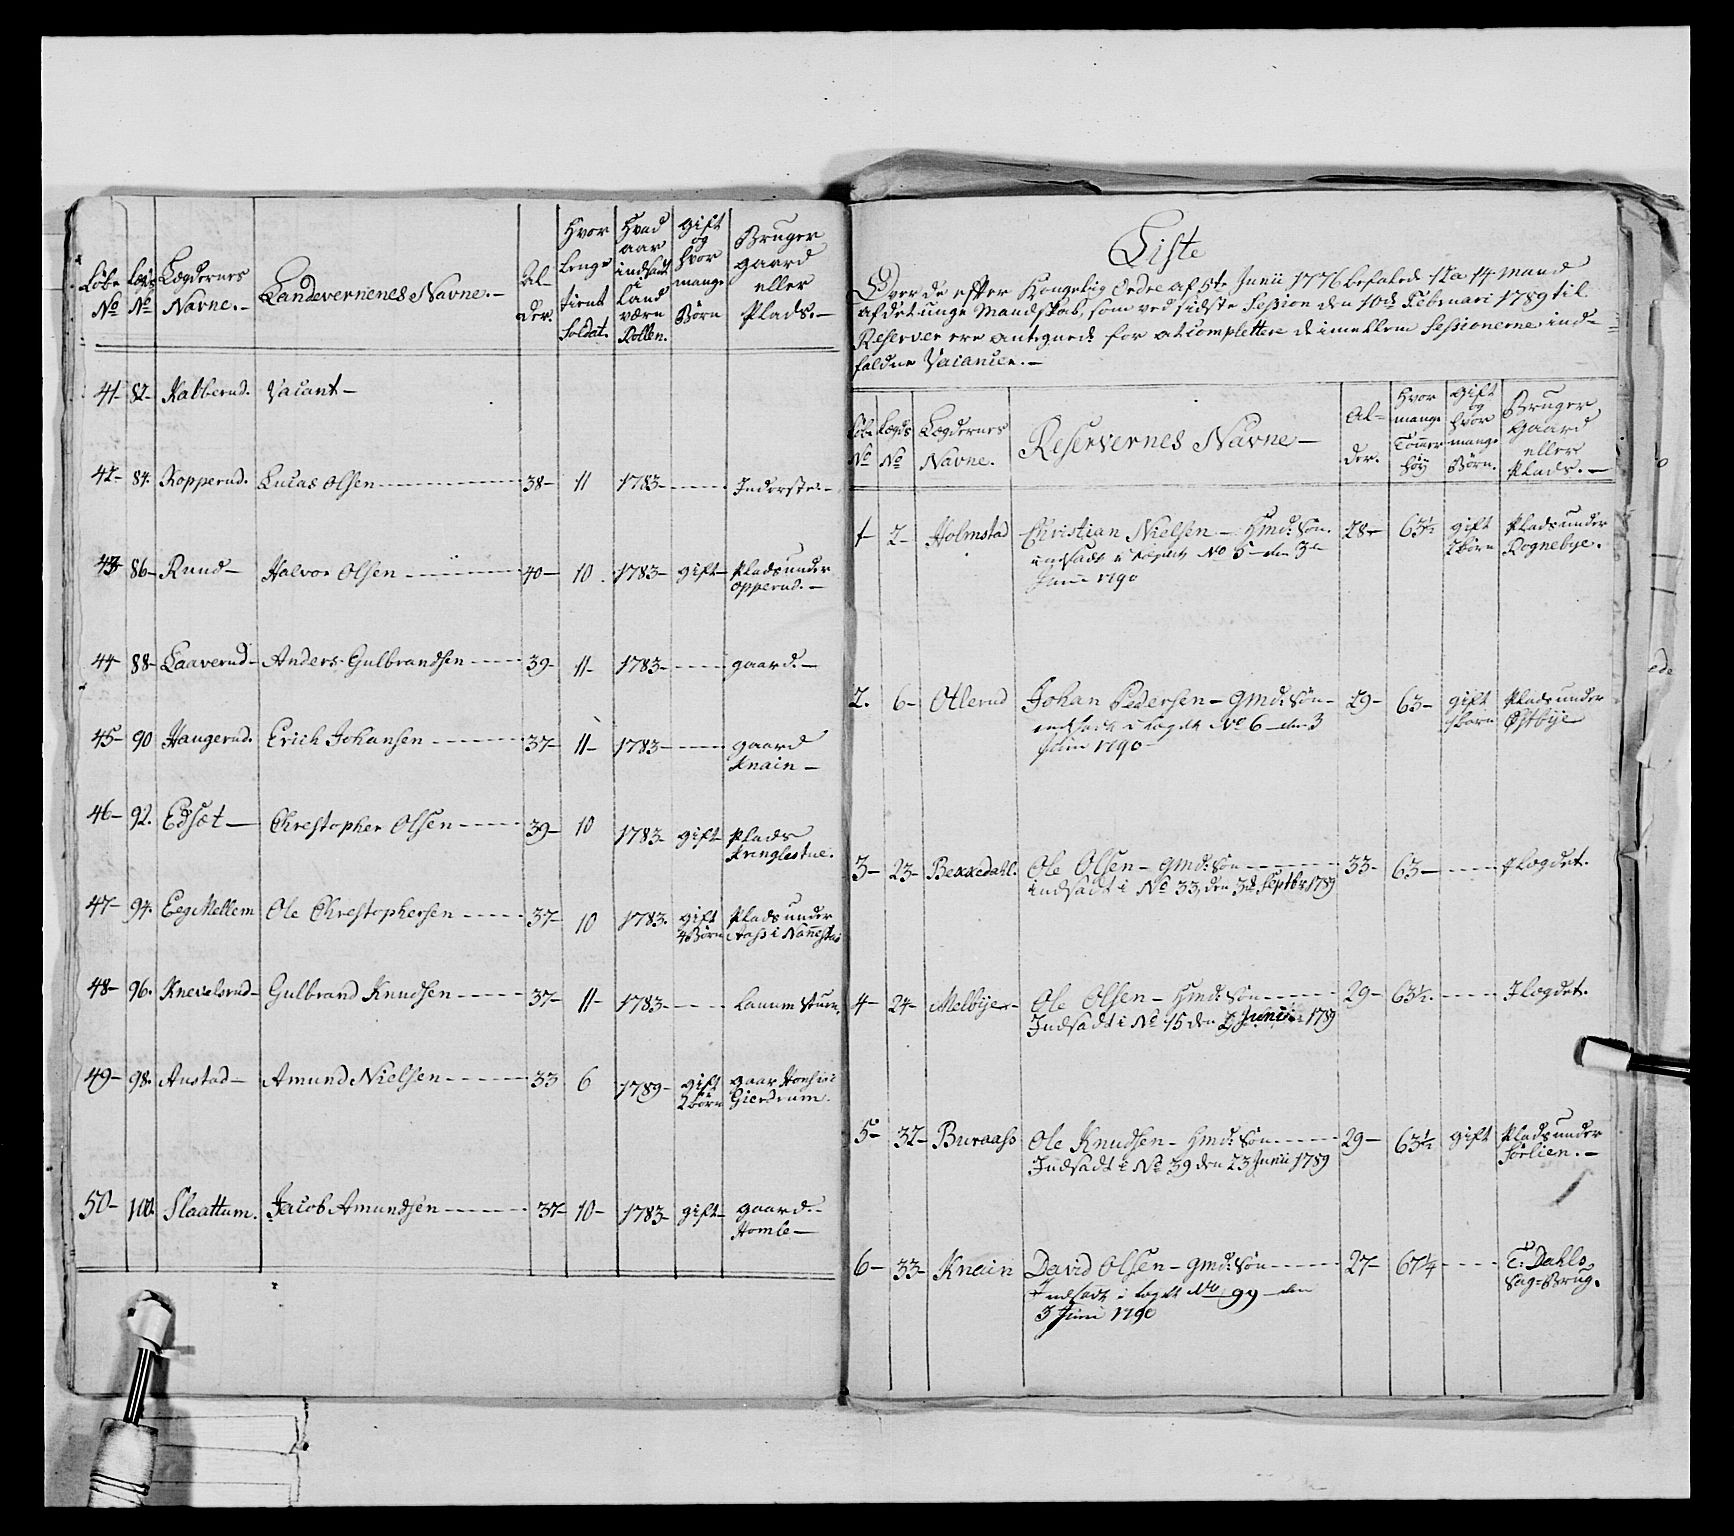 Løbe No | Legds No | Lægdernes Navne.- | Landevernenes Navne.- | Al-der. | Hvor lenge tient Soldat. | Hvad aar indsadt i Land værn Rollen. | gift og hvor mange Børn | Bruger gaard eller Plads.-
41- 82- Kalberud. Vacant-
42- 84. Kopperud. Lucas Olsen 38- 11 1783- Inderste.-
43- 86- Ruud- Halvor Olsen 40- 10. 1783- gift- Plads under
opperud.-
44- 88- Laaverud- Anders Gulbrandsen 39- 11- 1783- gaard.-
45- 90 Haugerud. Erich Johansen 37- 11- 1783- gaard
Knain-
46- 92. Edsæt- Christopher Olsen 39- 10 1783- gift- Plads
Kringlestue.
47- 94. EegMellem Ole Christophersen 37- 10 1783. gift Plads under
4 Børn Aass i Nannestad
48- 96. Knevelsrud- Gulbrand Knudsen 37- 11- 1783-
49- 98. Austad- Amund Nielsen 33 6 1789- gift gaar
2 børn Gierdrum.
50- 100. Slaattum. Jacob Amundsen 37- 10- 1783- gift- gaard.-
Homle-
Liste
Over de efter Kongelig Ordre af 5te Junii 1776 befalede 12 a 14 Mand
af det unge Mandskab, som ved sidste Session den 10de Februari 1789 til
Reserver ere antegnede for at complettere de imellem Sessionerne ind-
faldne Vacancer.-
Løbe No | Legds No | Lægdernes Navne. | Reservernes Navne- | Al-der. | Hvor mange Tomer høy | gift og hvor mange Børn. | Bruger Gaard eller Plads.-
1 2- Holmstad Christian Nielsen- Hmd: Søn. 28- 63½ gift Plads under
indsadt i legdet No 5- den 3de 2 børn Rognebye.
Junii 1790
2. 6- Otlerud Johan Pedersen- gmd: Søn- 29- 63- gift Plads under
indsadt i Legdet No 6- den 3 1 barn Østbye
Juni 1790
3- 23- Bekkedahl. Ole Olsen- gmd: Søn 33- 63- I Legdet.
indsadt i No 33, den 3de Septbr 1789
4- 24- Melbye- Ole Olsen- Hmd: Søn 29- 63½. I Legdet.
Indsadt i No 15 den 2 Junii 1789
5- 32- Buraass Ole Knudsen- Hmd: Søn 29- 63½ gift Plads under
Indsadt i No 39 den 23 Junii 1789 Sørlien.-
6- 33- Knain David Olsen- gmd: Søn 27- 67¼ T: Dahls
Indsadt i Legdet No 99- den Sag-Brug.
3 Juni 1790